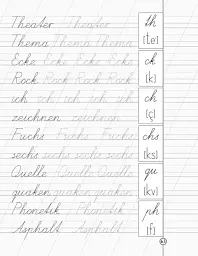 Theater Theater th
Thema Thema Thema [te:]
Ecke Ecke Ecke Ecke ck
Rock Rock Rock Rock [k]
ich ich ich ich ich ch
zeichnen zeichnen [ç]
Fuchs Fuchs Fuchs chs
sechs sechs sechs sechs [ks]
Quelle Quelle Quelle qu
quaken quaken quaken [kv]
Phonetik Phonetik ph
Asphalt Asphalt [f]